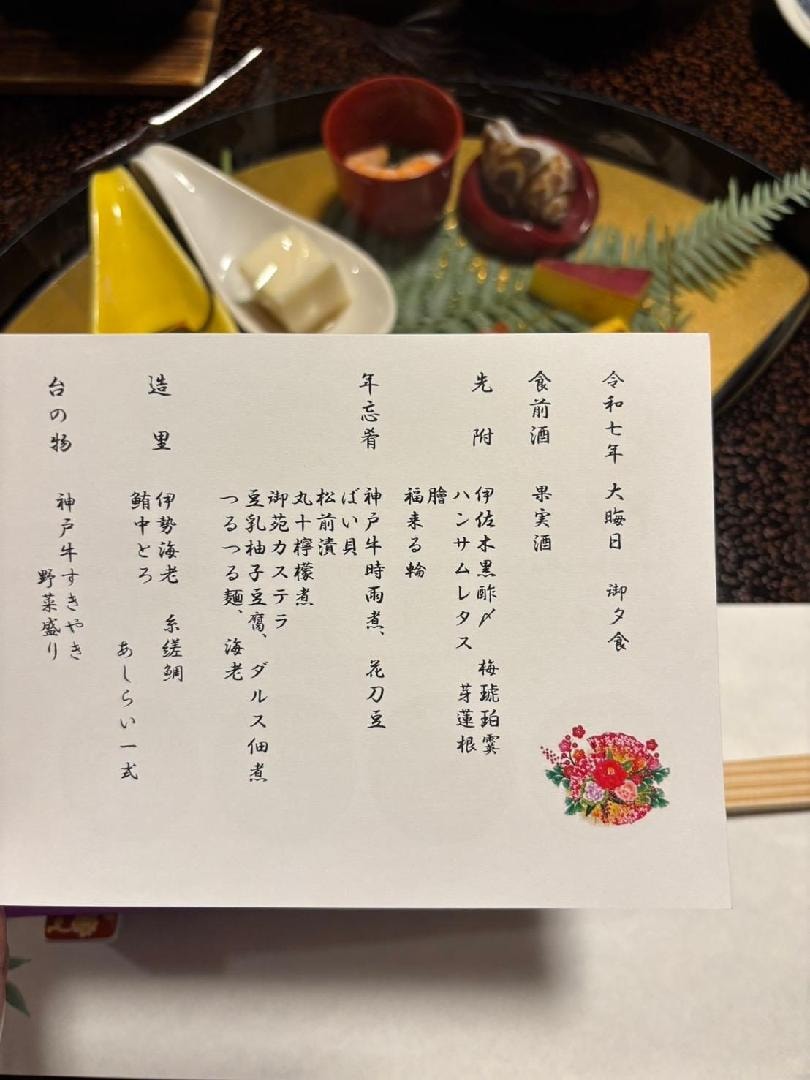 令和七年 大晦日 御夕食
食前酒 果実酒
先附 伊佐木黒酢〆 梅琥珀霙
ハンサムレタス 芽蓮根
膾
福来る輪
年忘肴 神戸牛時雨煮、花刀豆
ばい貝
松前漬
丸十檸檬煮
御苑カステラ
豆乳柚子豆腐、ダルス佃煮
つるつる麺、海老
造里 伊勢海老 糸縒鯛
鮪中とろ あしらい一式
台の物 神戸牛すきやき
野菜盛り